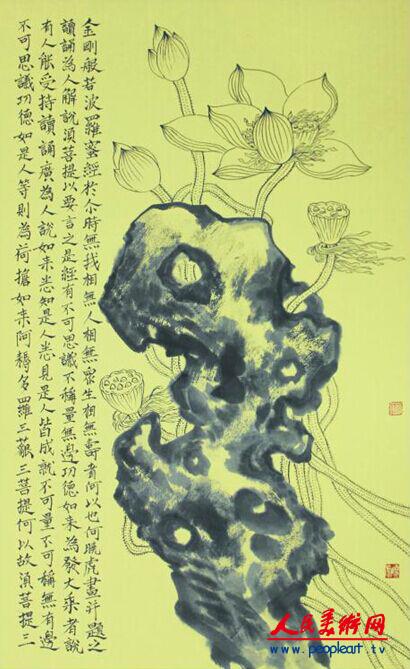 金剛般若波羅蜜經於尒時無我相無人相無眾生相無壽者何以也何曉虎畫并題之
讀誦為人解說須菩提以要言之是經有不可思議不稱量無邊功德如来為發大乘者說
有人能受持讀誦廣為人說如来悉知是人悉見是人皆成就不可量不可稱無有邊
不可思議功德如是人等則為荷擔如来阿耨多羅三藐三菩提何以故須菩提三
人民美术网
www.peopleart.tv